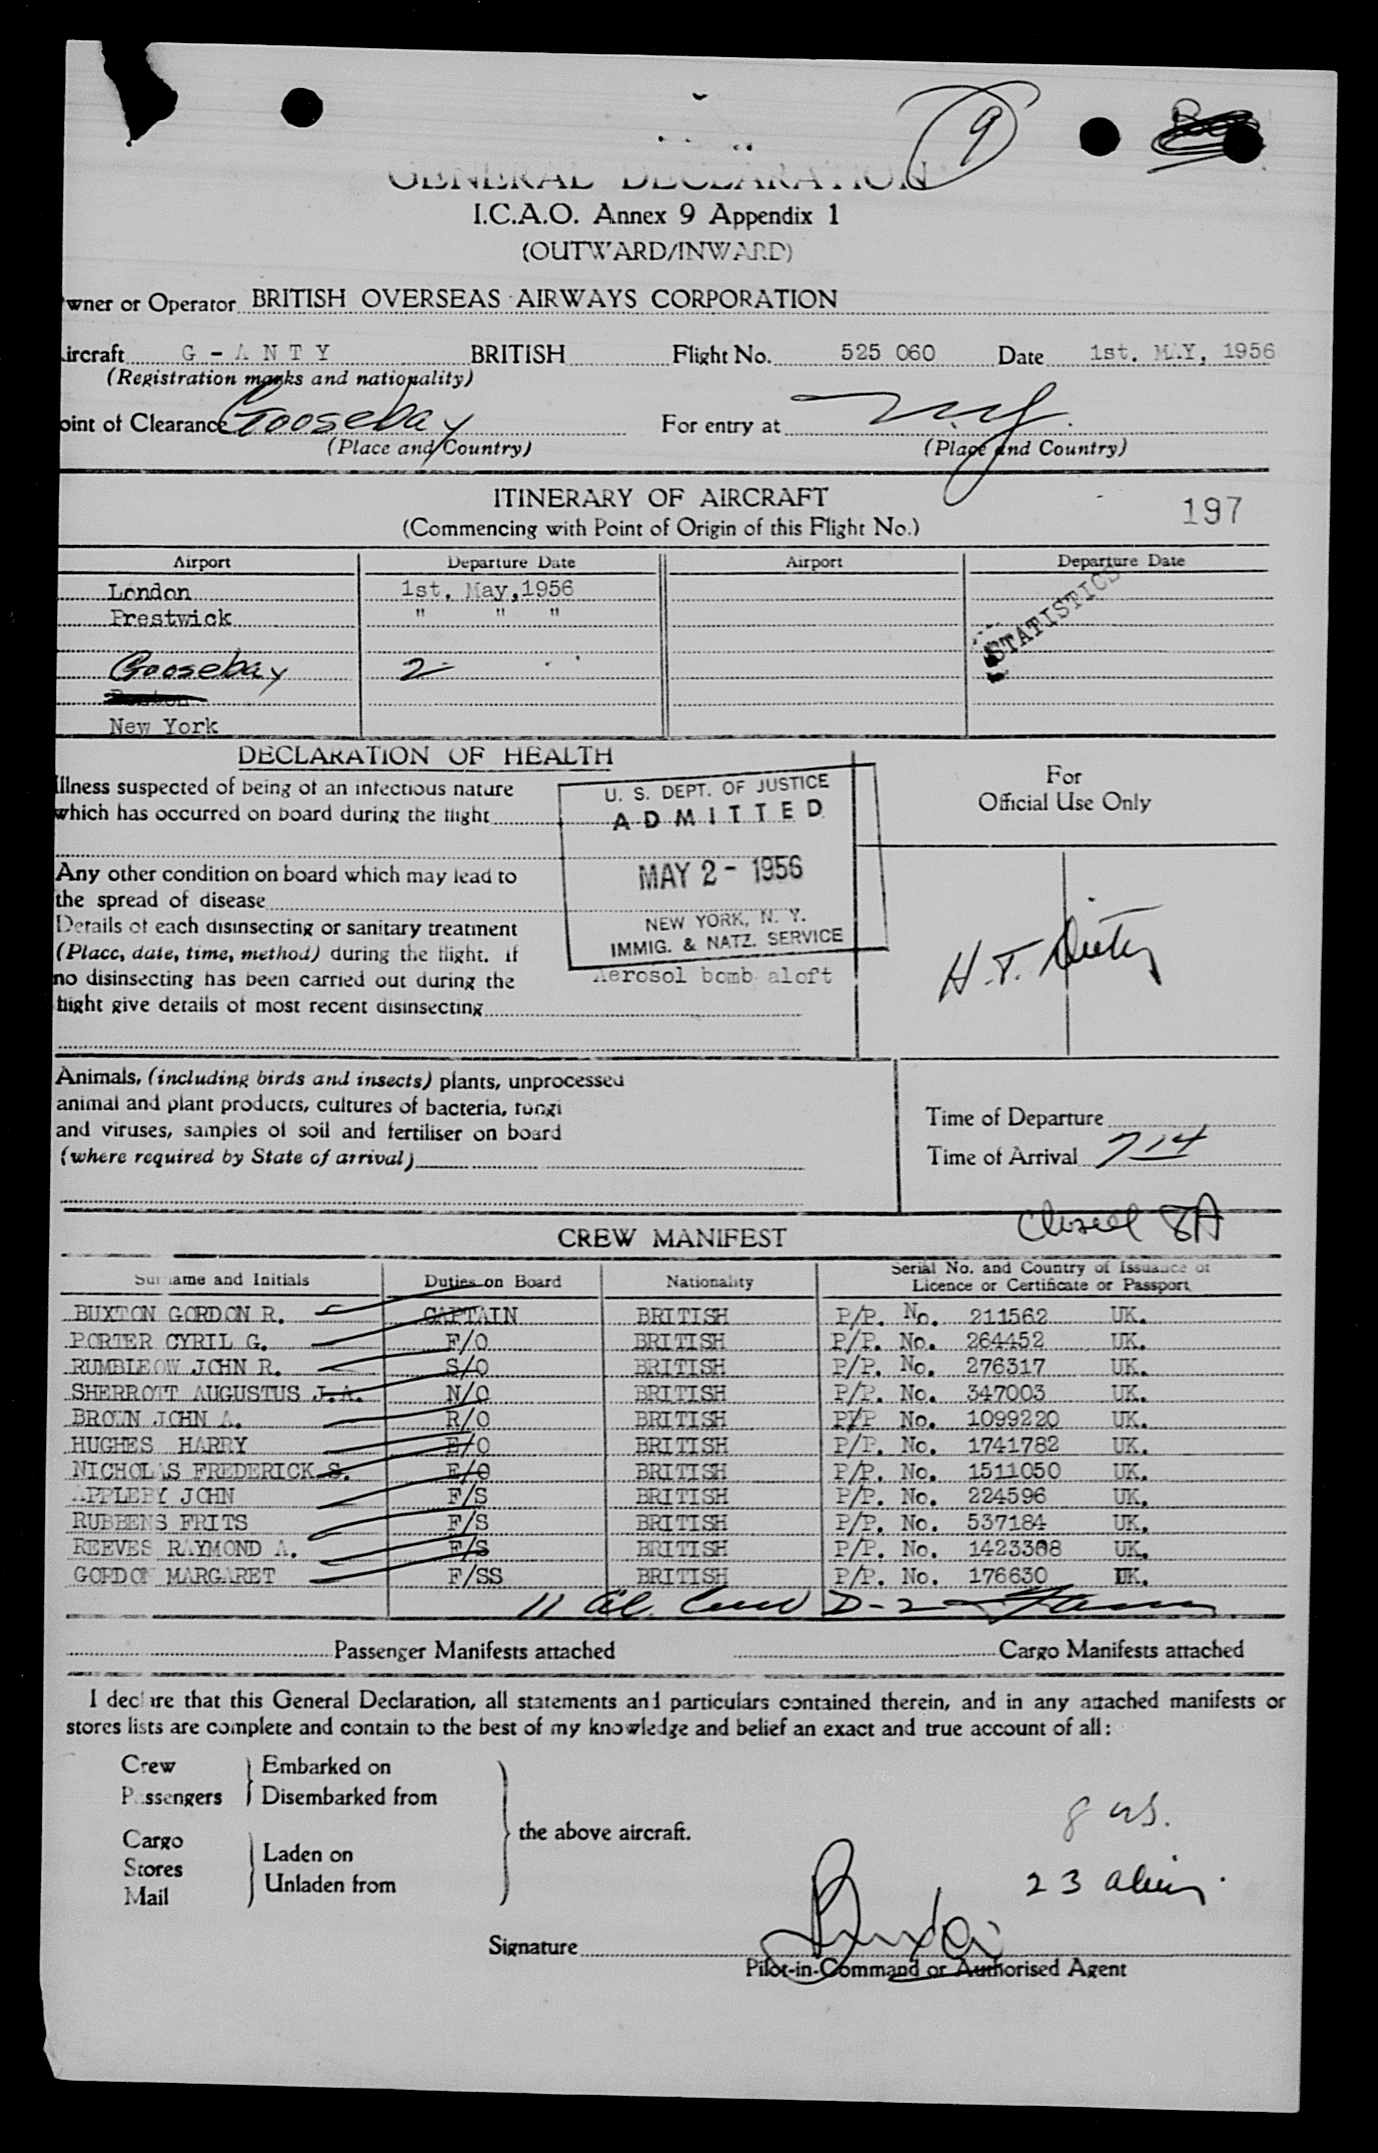 9
GENERAL DECLARATION
I.C.A.O. Annex 9 Appendix 1
(OUTWARD/INWARD)
wner or Operator BRITISH OVERSEAS AIRWAYS CORPORATION
ircraft G - A N T Y BRITISH Flight No. 525 060 Date 1st. MAY, 1956
(Registration marks and nationality)
oint of Clearance Goosebay For entry at N.Y.
(Place and Country) (Place and Country)
ITINERARY OF AIRCRAFT
(Commencing with Point of Origin of this Flight No.)
197
Airport Departure Date Airport Departure Date
London 1st. May,1956
Prestwick " " "
STATISTICS
Goosebay 2
New York
DECLARATION OF HEALTH
Illness suspected of being of an infectious nature
which has occurred on board during the flight
U. S. DEPT. OF JUSTICE
ADMITTED
MAY 2 - 1956
NEW YORK, N. Y.
IMMIG. & NATZ. SERVICE
For
Official Use Only
Any other condition on board which may lead to
the spread of disease
Details of each disinsecting or sanitary treatment
(Place, date, time, method) during the flight. if
no disinsecting has been carried out during the
flight give details of most recent disinsecting
Aerosol bomb aloft
H.T.
Animals, (including birds and insects) plants, unprocessed
animal and plant products, cultures of bacteria, fungi
and viruses, samples of soil and fertiliser on board
(where required by State of arrival)
Time of Departure
Time of Arrival 714
Closed 8A
CREW MANIFEST
Surname and Initials Duties on Board Nationality Serial No. and Country of Issuance of
Licence or Certificate or Passport
BUXTON GORDON R. CAPTAIN BRITISH P/P. No. 211562 UK.
PORTER CYRIL G. F/O BRITISH P/P. No. 264452 UK.
RUMBLEOW JOHN R. S/O BRITISH P/P. No. 276317 UK.
SHERROTT AUGUSTUS J.A. N/O BRITISH P/P. No. 347003 UK.
BROWN JOHN A. R/O BRITISH P/P No. 1099220 UK.
HUGHES HARRY E/O BRITISH P/P. No. 1741782 UK.
NICHOLAS FREDERICK S. E/O BRITISH P/P. No. 1511050 UK.
APPLEBY JOHN F/S BRITISH P/P. No. 224596 UK.
RUBBENS FRITS F/S BRITISH P/P. No. 537184 UK.
REEVES RAYMOND A. F/S BRITISH P/P. No. 1423308 UK.
GORDON MARGARET F/SS BRITISH P/P. No. 176630 UK.
11 Crew D-2
Passenger Manifests attached Cargo Manifests attached
I declare that this General Declaration, all statements and particulars contained therein, and in any attached manifests or
stores lists are complete and contain to the best of my knowledge and belief an exact and true account of all:
Crew Embarked on
Passengers Disembarked from
the above aircraft.
Cargo Laden on
Stores
Mail Unladen from
8 US.
23 alien
Signature Buxton
Pilot-in-Command or Authorised Agent